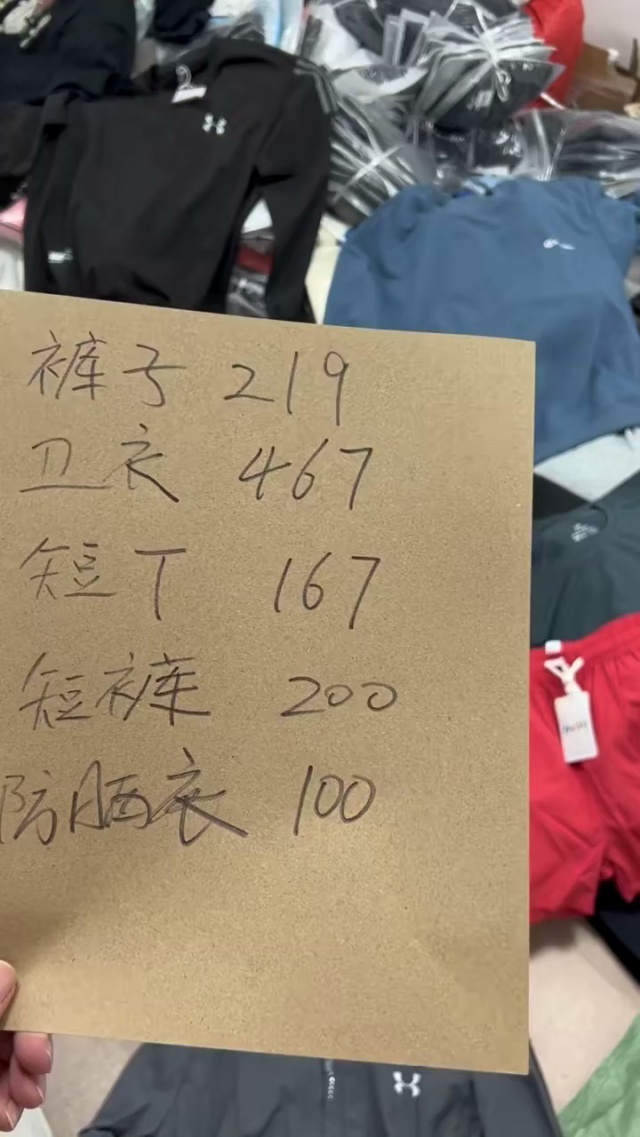 裤子 219
卫衣 467
短T 167
短裤 200
防晒衣 100